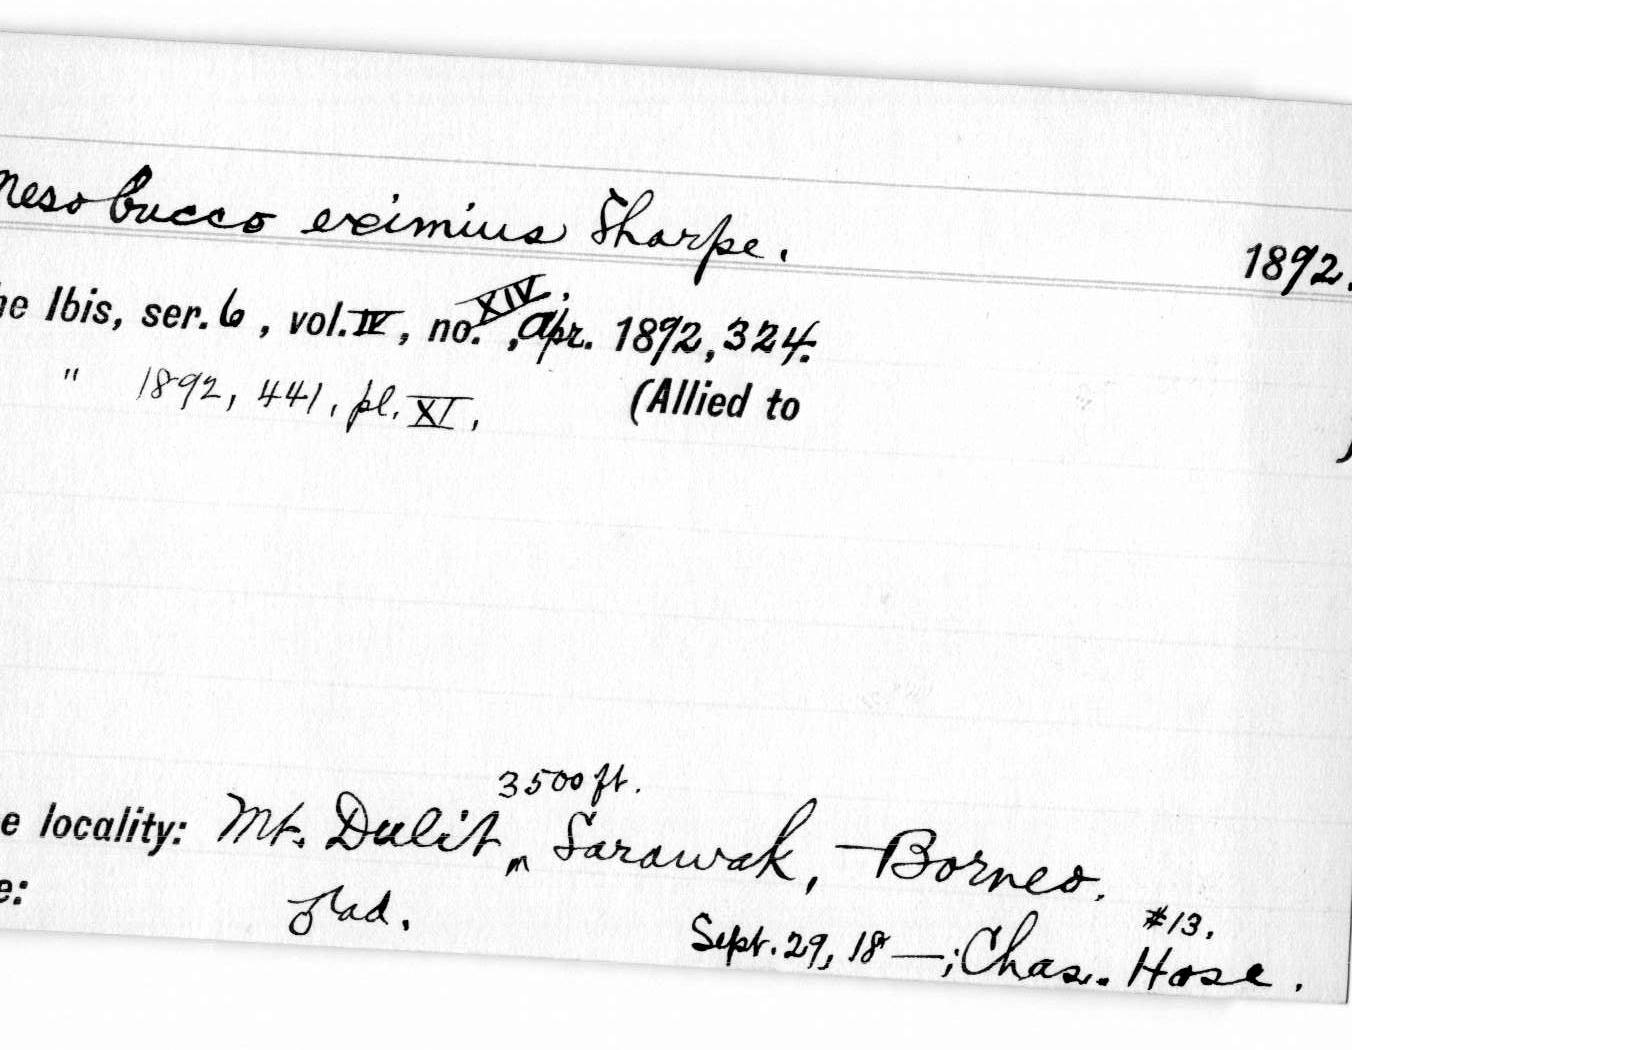 Mesobucco eximius Sharpe.
1892.
he Ibis, ser. 6, vol. IV, no. XIV, Apr. 1892, 324.
" 1892, 441, pl. XI, (Allied to )
3500 ft.
e locality: Mt. Dulit, Sarawak, Borneo.
e: ad. #13.
Sept. 29, 18—; Chas. Hose.